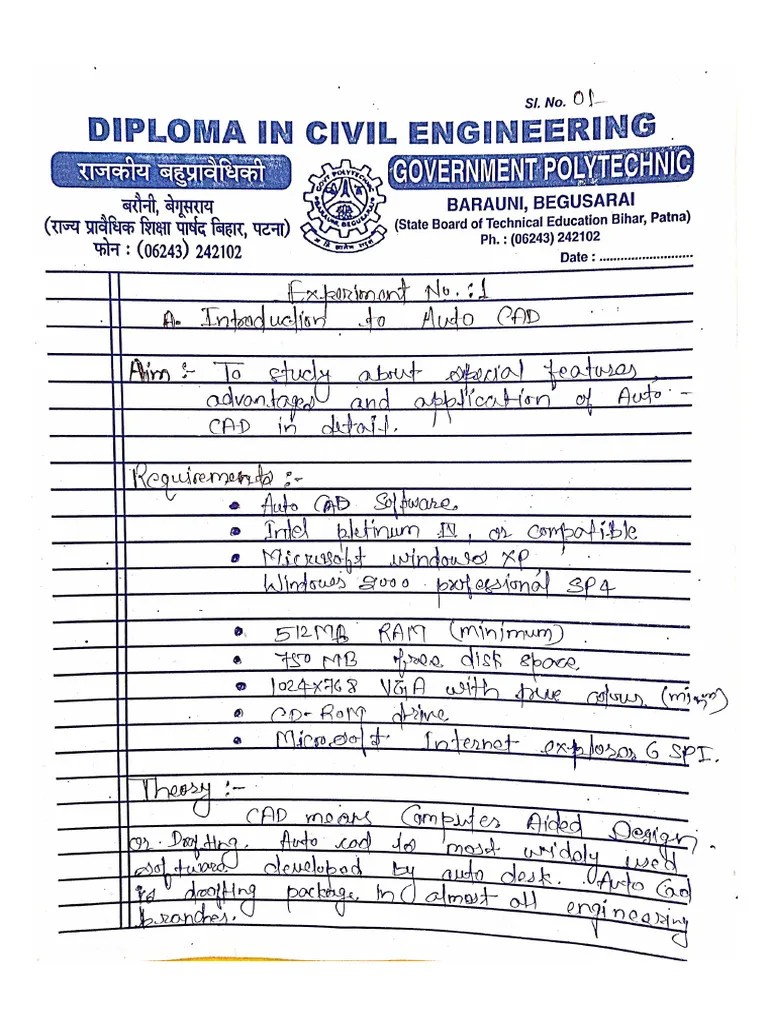 Sl. No. 01
DIPLOMA IN CIVIL ENGINEERING
राजकीय बहुप्रावैधिकी
बरौनी, बेगूसराय
(राज्य प्रावैधिक शिक्षा पार्षद बिहार, पटना)
फोन : (06243) 242102
GOVT. POLYTECHNIC
BARAUNI, BEGUSARAI
GOVERNMENT POLYTECHNIC
BARAUNI, BEGUSARAI
(State Board of Technical Education Bihar, Patna)
Ph. : (06243) 242102
Date : ..........................
Experiment No. : 1
A. Introduction to Auto CAD
Aim :- To study about special features,
advantages and application of Auto -
CAD in detail.
Requirements :-
• Auto CAD Software.
• Intel pletinum IV, or compatible
• Microsoft windows XP,
Windows 2000 professional SP4
• 512MB RAM (minimum)
• 750 MB free disk space
• 1024x768 VGA with true colour (mi
• CD-ROM drive
• Microsoft Internet explorer 6 SP1.
Theory :-
CAD means Computer Aided Design
or Drafting. Auto cad is most widely used
software developed by auto desk. Auto Cad
is drafting package. In almost all engineering
branches.